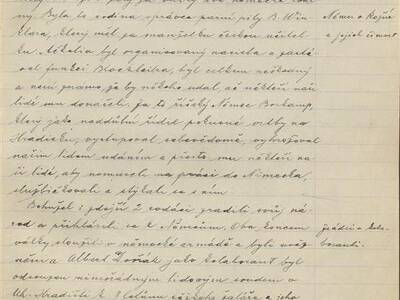 ny. Byla to rodina správce parní pily B. Win-
klera, který měl za manželku českou učitel-
ku. Ačkoliv byl organisovaný nacista a zastá-
val funkci Blockleitra, byl celkem neškodný
a není známo, že by někoho udal, ač někteří naši
lidé mu donášeli. Za to říšský Němec Borkamp,
který jako naddůlní řídil pokusné vrtby na
Hradisku, vystupoval sebevědomě, vyhrožoval
našim lidem udáním a přesto mu někteří na-
ši lidé, aby nemuseli na práci do Německa,
služebníčkovali a stýkali se s ním.
Bohužel i zdejší 2 rodáci zradili svůj ná-
rod a přihlásili se k Němcům. Oba koncem
války sloužili v německé armádě a byli
a Albert Dvořák jako kolaborant byl
odsouzen mimořádným lidovým soudem v
Uh. Hradišti k žaláře a jeho
Němci v
a jejich činnost
Zrádci a kola-
boranti.